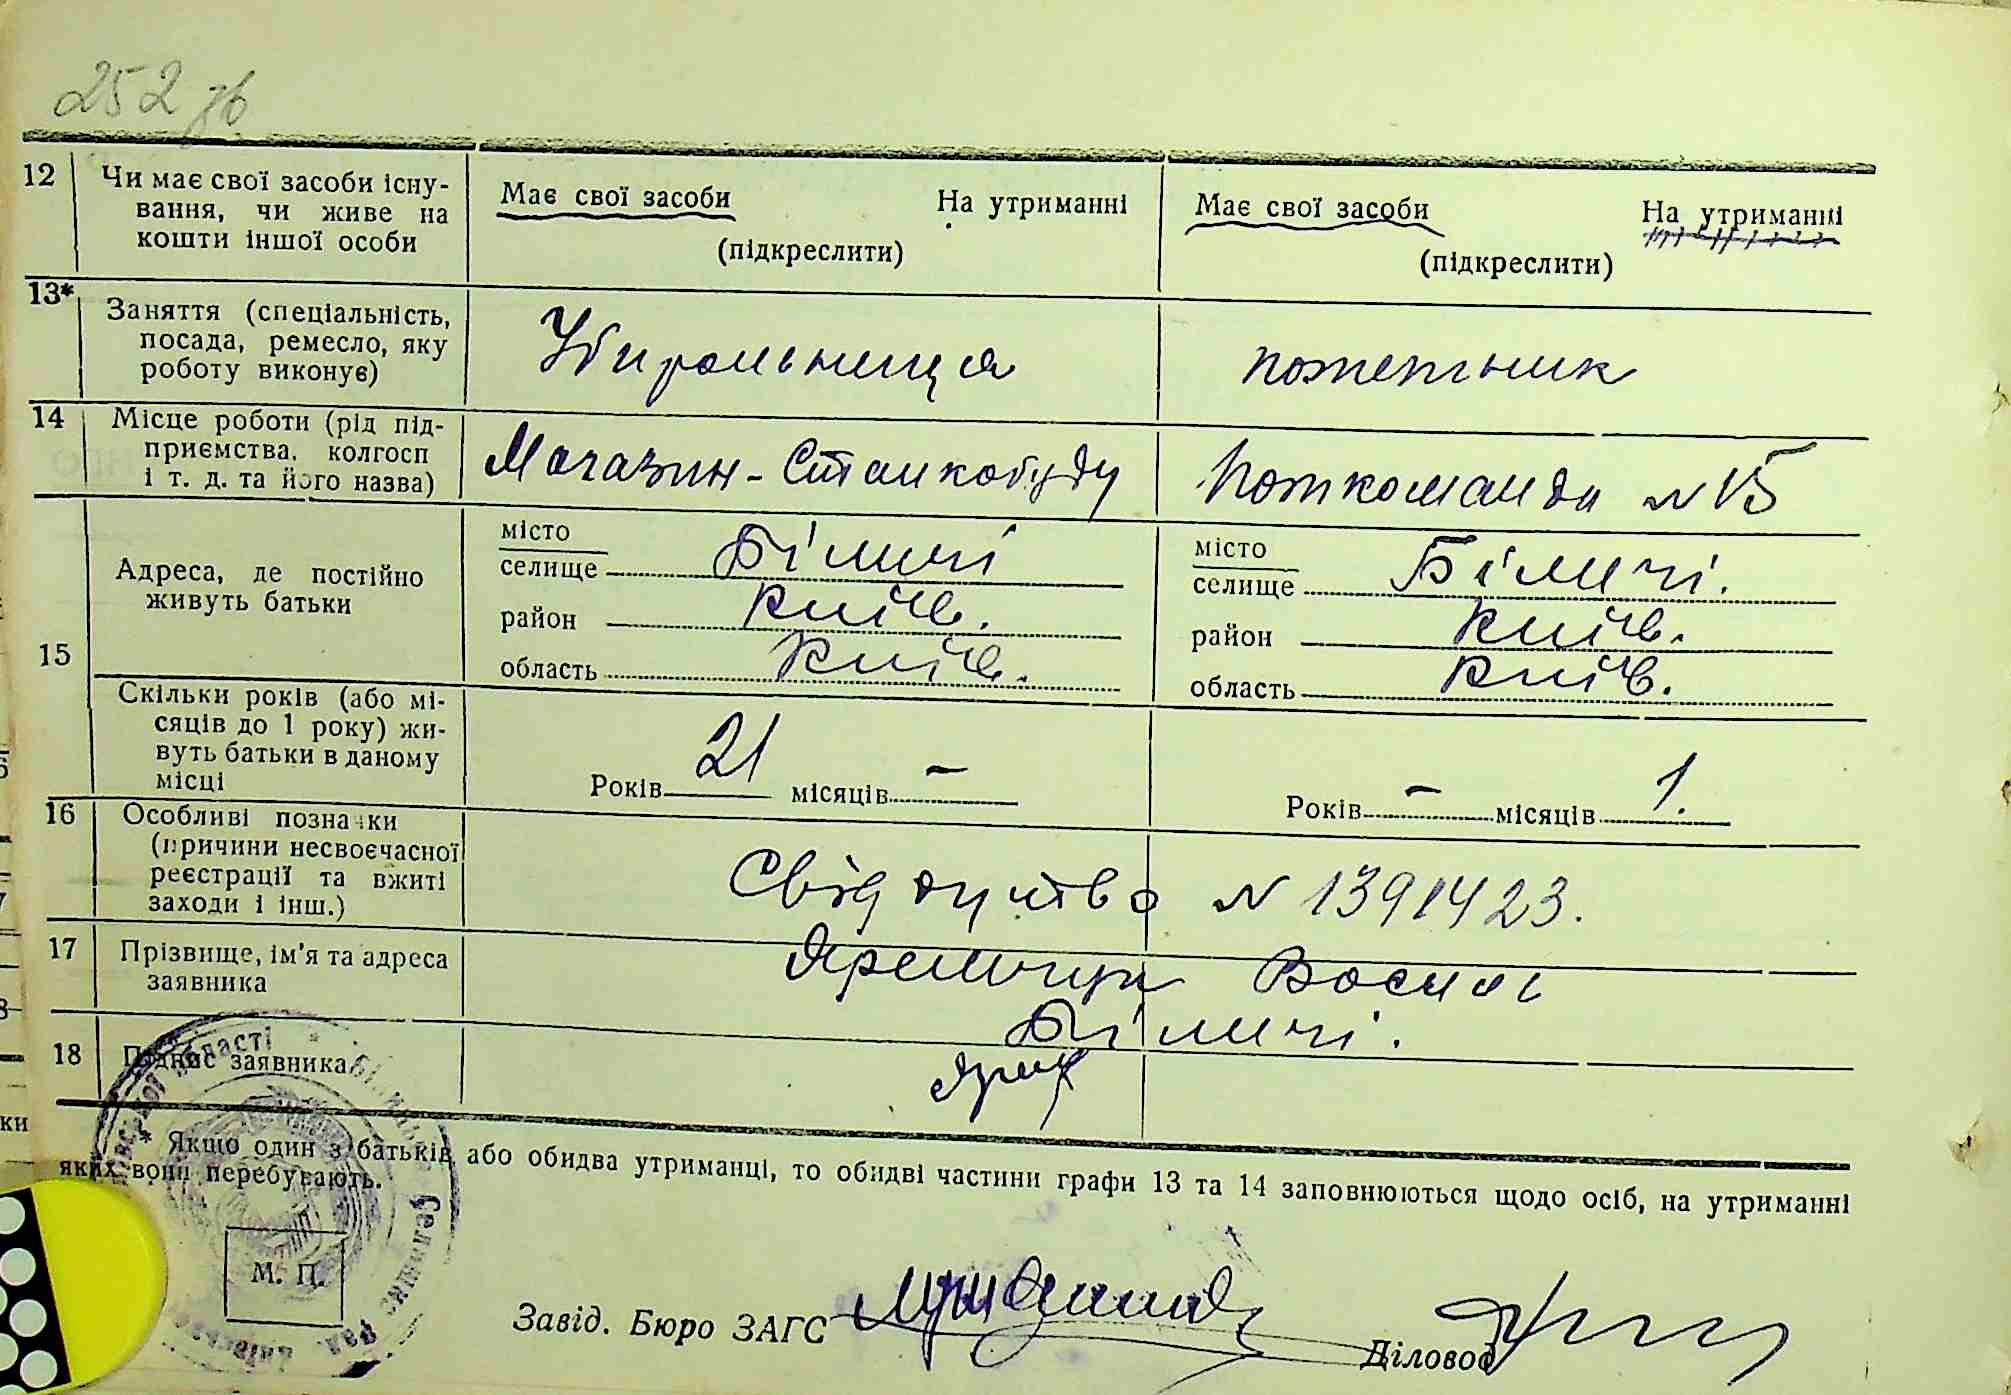 252 зв
12 Чи має свої засоби існу-
вання, чи живе на
кошти іншої особи
Має свої засоби На утриманні
(підкреслити)
Має свої засоби На утриманні
(підкреслити)
13* Заняття (спеціальність,
посада, ремесло, яку
роботу виконує)
Убиральниця
пожежник
14 Місце роботи (рід під-
приємства, колгосп
і т. д. та його назва)
Магазин - Станкобуду
Пожкоманда №
15
Адреса, де постійно
живуть батьки
місто
селище Біличі
район Київ.
область Київ.
місто
селище Біличі.
район Київ.
область Київ.
Скільки років (або мі-
сяців до 1 року) жи-
вуть батьки в даному
місці
Років 21 місяців –
Років – місяців 1.
16 Особливі позначки
(причини несвоєчасної
реєстрації та вжиті
заходи і інш.)
Свідоцтво N 1391423.
17 Прізвище, ім'я та адреса
заявника
Василь
Біличі.
18 Підпис заявника
* Якщо один з батьків або обидва утриманці, то обидві частини графи 13 та 14 заповнюються щодо осіб, на утриманні
яких вони перебувають.
М. П.
Завід. Бюро ЗАГС
Діловод